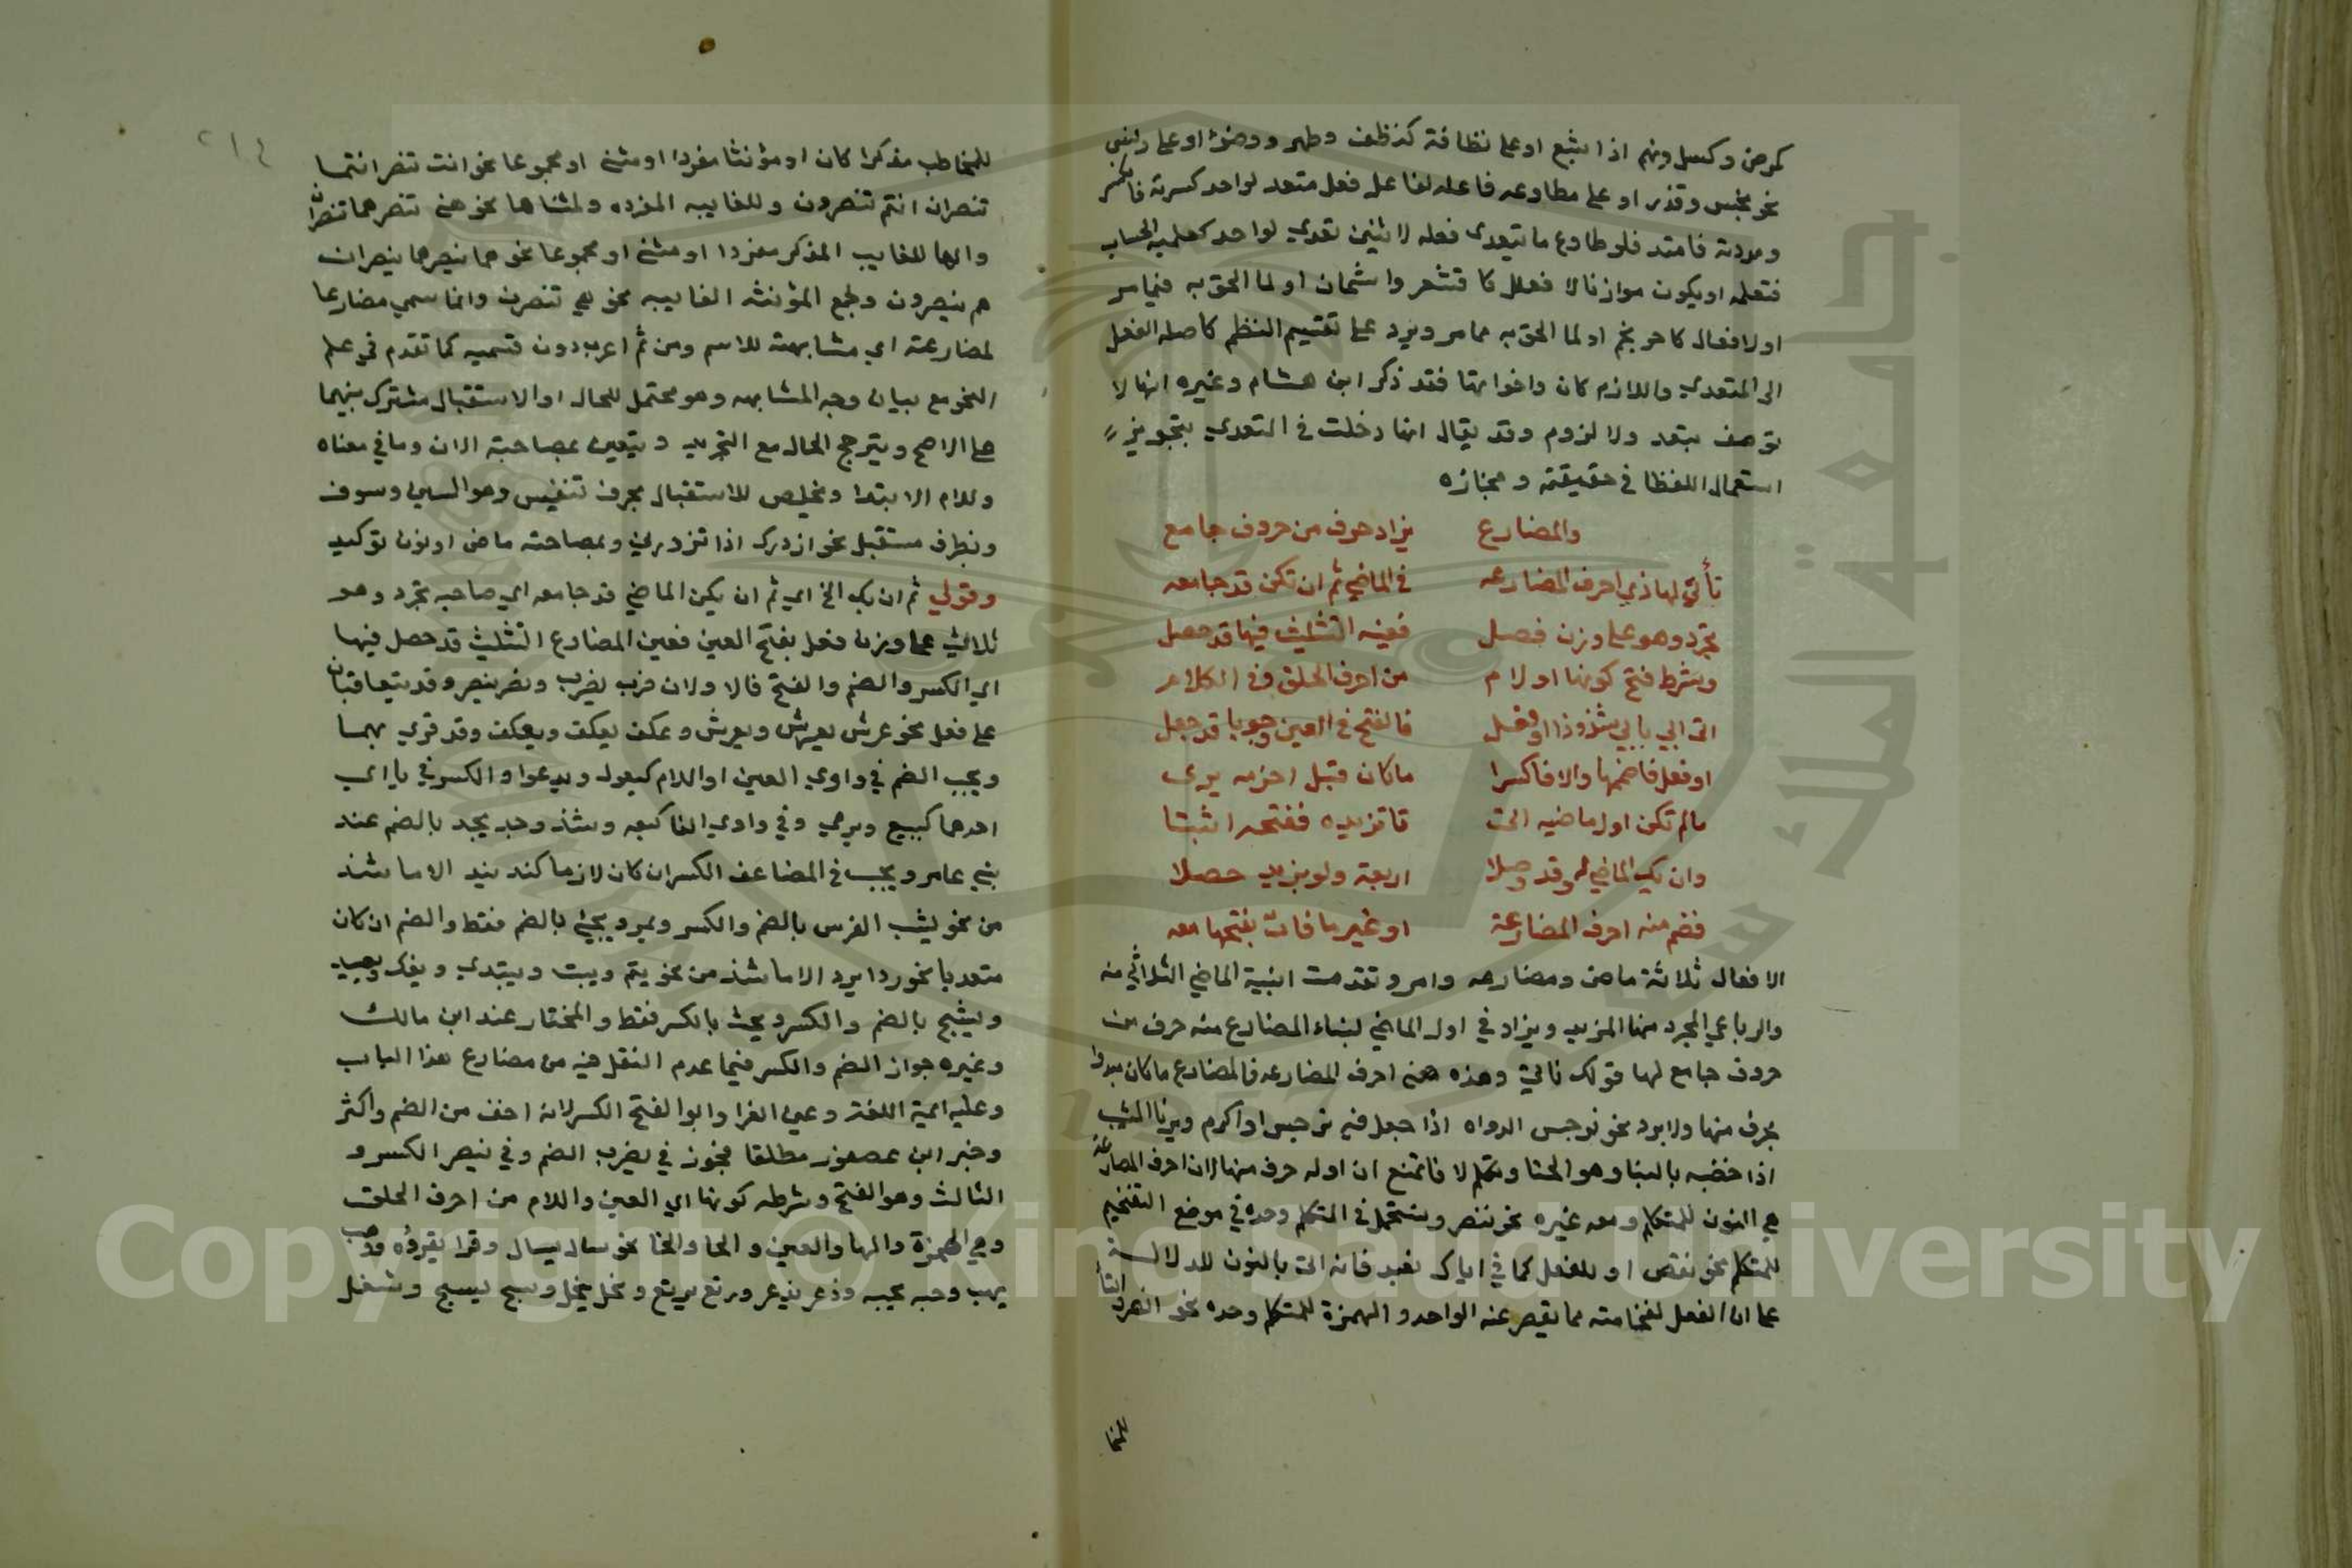 كمرض وكسل ونهم اذا شبع او على نظافة كنظف وطهر ووضؤ او على دنس
نحو نجس وقذر او على مطاوعه فاعله لفاعل فعل متعد لواحد كسرته فانكسر
ومددته فامتد فلو طاوع ما يتعدى فعله لاثنين تعدي لواحد كعلمته الحساب
فتعلمه او يكون موازنا لا فعلل كاقشعر واشمان او لما الحق به فيما مر
اولافعال كاحرنجم او لما الحق به مما مر ويرد على تقسيم النظم كاصله الفعل
الى المتعدي واللازم كان واخواتها فقد ذكر ابن هشام وغيره انها لا
توصف بتعد ولا لزوم وقد يقال انها دخلت في التعدي بتجويز
استعمال اللفظ في حقيقته ومجازه
والمضارع يزاد حرف من حروف جامع
نأتي لها ذي احرف المضارعه في الماضي ثم ان تكن قد جامعه
تجرد وهو على وزن فعل فعينه التثليث فيها قد حصل
وشرط فتح كونها او لام من احرف الحلق وفي الكلام
اتى ابي يابي شذوذا او فعل فالفتح في العين وجوبا قد جعل
او فعل فاضمها والا فاكسرا ما كان قبل اخره يرى
مالم تكن اول ماضيه اتى تا تزيده ففتحه اثبتا
وان يك الماضي له قد وصلا اربعة ولو بزيد حصلا
فضم منه احرف المضارعة او غيرها فات بفتحها معه
الافعال ثلاثة ماض ومضارعه وامر وتقدمت ابنية الماضي الثلاثي منه
والرباعي المجرد منها المزيد ويزاد في اول الماضي لبناء المضارع منه حرف من
حروف جامع لها قولك نأتي وهذه هي احرف المضارعه فالمضارع ما كان مبدوا
بحرف منها ولا يرد نحو نرجس الدواء اذا جعل فيه نرجس او اكرم ويرنا الشيب
اذا خضبه باليرنا وهو الحنا وتكلم لا فاتمنع ان اوله حرف منها لان احرف المضارعة
هي النون للمتكلم ومعه غيره نحو ننصر وتستعمل في المتكلم وحده في موضع التفخيم
للمتكلم نحو نقص او للفعل كما في اياك نعبد فانه اتى بالنون للدلالة
على ان الفعل لفخامته مما يقصر عنه الواحد والهمزة للمتكلم وحده نحو انصر والتا
للمخا
٢١٤
للمخاطب مذكرا كان او مؤنثا مفردا او مثنى او مجموعا نحو انت تنصر انتما
تنصران انتم تنصرون وللغايبه المفرده ولمثناها نحو هي تنصر هما تنصران
واليا للغايب المذكر مفردا او مثنى او مجموعا نحو هو ينصر هما ينصران
هم ينصرون ولجمع المؤنثه الغايبه نحو هن ينصرن وانما سمي مضارعا
لمضارعته اي مشابهته للاسم ومن ثم اعرب دون قسميه كما تقدم في علم
النحو مع بيان وجه المشابهه وهو محتمل للحال او الاستقبال مشترك بينهما
على الاصح ويترجح الحال مع التجريد ويتعين بمصاحبة الان وما في معناه
ولام الابتدا ويخلص للاستقبال بحرف تنفيس وهو السين وسوف
وبظرف مستقبل نحو ازورك اذا تزورني وبمصاحبته ماض او نون توكيد
وقولي ثم ان يك الخ اي ثم ان يكن الماضي قد جامعه اي صاحبه تجرد وهو
ثلاثي على وزن فعل بفتح العين فعين المضارع التثليث قد حصل فيها
اي الكسر والضم والفتح فالاولان ضرب يضرب ونصر ينصر وقد يتعاقبان
على فعل نحو عرش يعرش ويعرش وعكف يعكف ويعكف وقد قري بهما
ويجب الضم في واوي العين او اللام كيقول ويدعوا والكسر في يا اي
احدهما كيبيع ويرمي وفي واوي الفا كيعد وشذ وجد يجد بالضم عند
بني عامر ويجب في المضاعف الكسر ان كان لازما كند يند الا ما شذ
من نحو يشب الفرس بالضم والكسر ويمر ويجئ بالضم فقط والضم ان كان
متعديا نحو رد يرد الا ما شذ من نحو ينم ويبت ويبتدي ويفك ويصيد
ويشج بالضم والكسر ويحب بالكسر فقط والمختار عند ابن مالك
وغيره جواز الضم والكسر فيما عدم النقل فيه من مضارع هذا الباب
وعليه ايمة اللغة وعين الفرا وابو الفتح الكسر لانه اخف من الضم واكثر
وخير ابن عصفور مطلقا فجوز في يضرب الضم وفي ينصر الكسر و
الثالث وهو الفتح وشرطه كونها اي العين واللام من احرف الحلق
وهي الهمزة والها والعين والحا والخا نحو سال يسال وقرا يقرؤه وذهب
يهب وجبه يجبه وذعر يذعر ورتع يرتع ونحل ينحل وسبح يسبح وشغل
Copyright © King Saud University
جامعة الملك سعود
1957